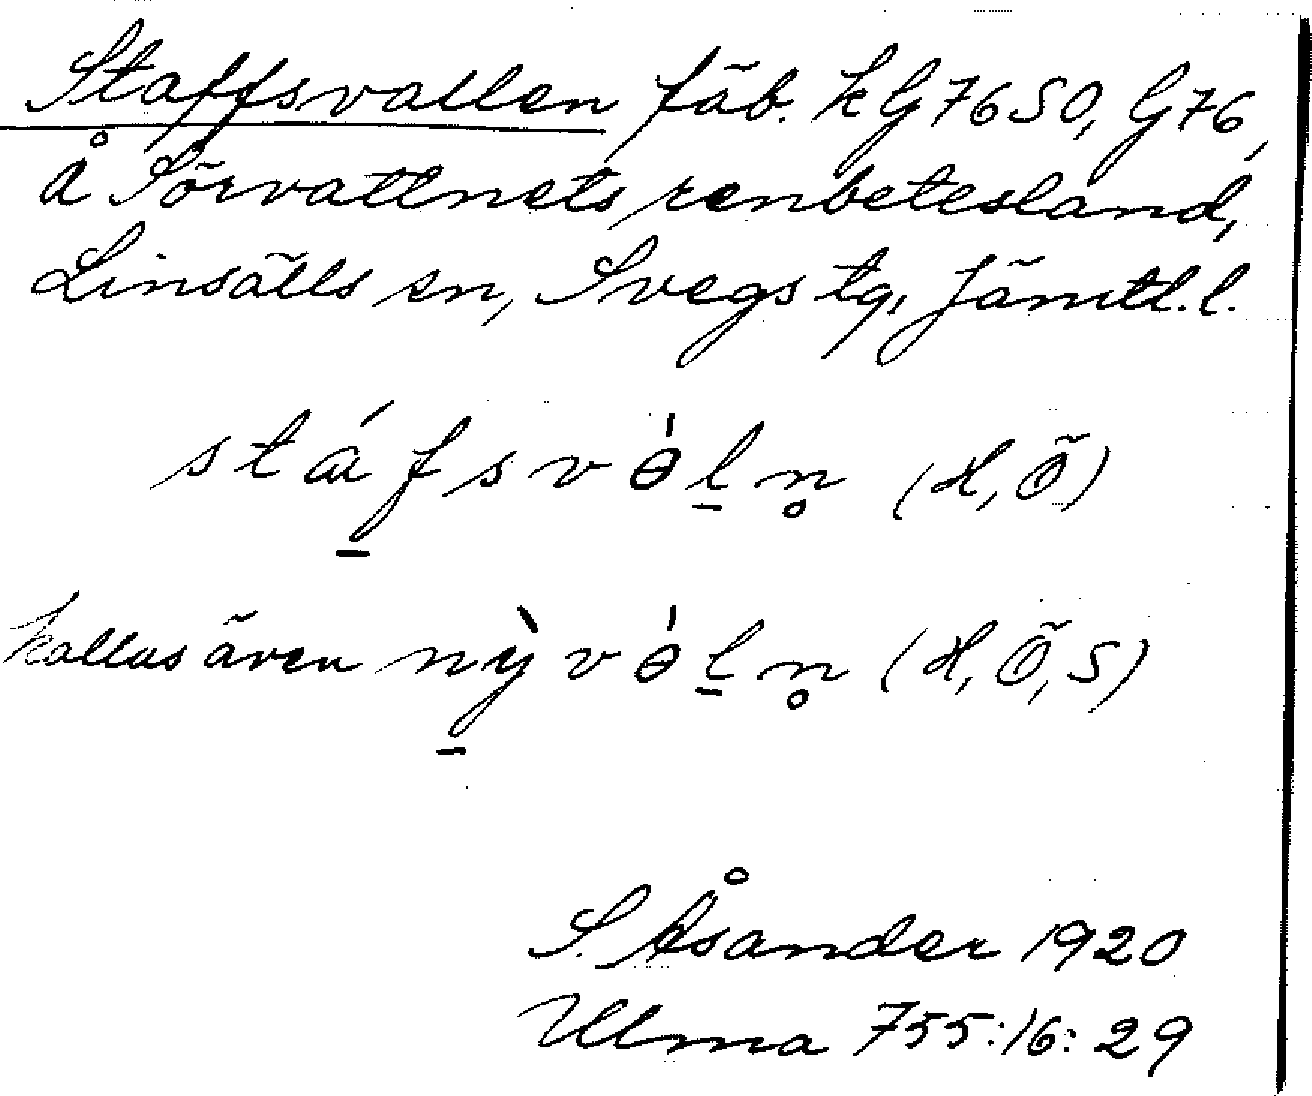 Staffsvallen fäb. k G 76 SO, G 76,
å Sörvattnets renbetesland,
Linsälls sn, Svegs tg, Jämtl. l.
stáfsvɵ̀l̠n̥ (H, Ö)
kallas även nỳvɵ̀l̠n̥ (H, Ö, S)
S. Åsander 1920
Ulma 755:16:29